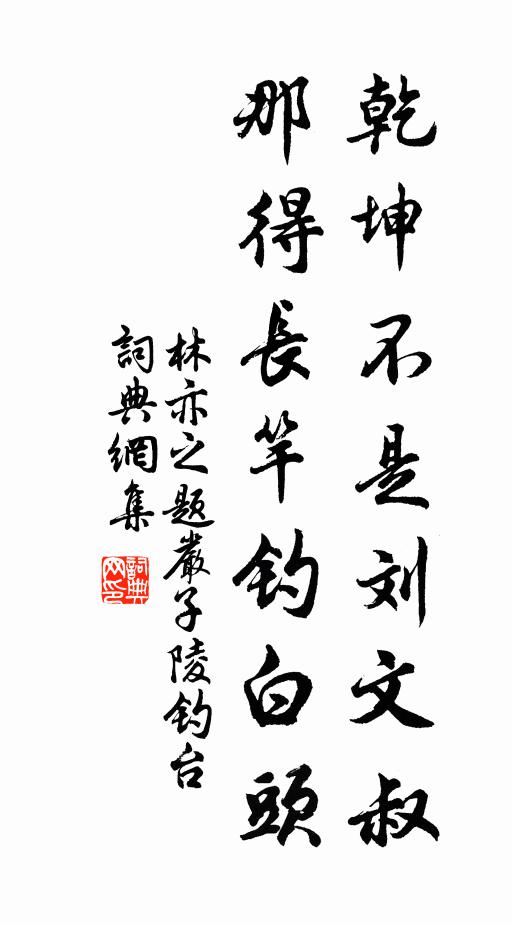 乾坤不是刘文叔
那得長竿钓白頭
林亦之题嚴子陵钓台
詞典網集
詞典网印